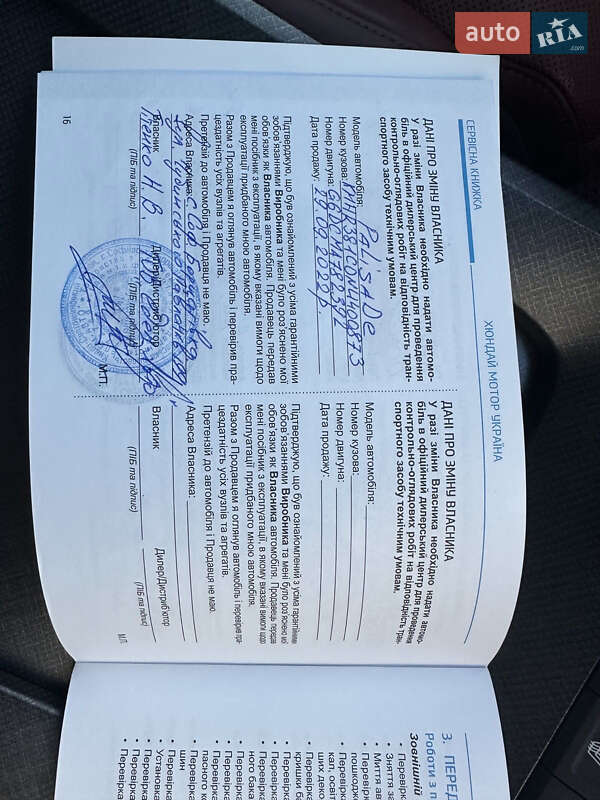 auto RIA.com
СЕРВІСНА КНИЖКА
ХЮНДАЙ МОТОР УКРАЇНА
ДАНІ ПРО ЗМІНУ ВЛАСНИКА
У разі зміни Власника необхідно надати автомо-
біль в офіційний дилерський центр для проведення
контрольно-оглядових робіт на відповідність тран-
спортного засобу технічним умовам.
Модель автомобіля: PALISADE
Номер кузова:
Номер двигуна:
Дата продажу: 29.09.2022р.
Підтверджую, що був ознайомлений з усіма гарантійними
зобов'язаннями Виробника та мені було роз'яснено мої
обов'язки як Власника автомобіля. Продавець передав
мені посібник з експлуатації, в якому вказані вимоги щодо
експлуатації придбаного мною автомобіля.
Разом з Продавцем я оглянув автомобіль і перевірив пра-
цездатність усіх вузлів та агрегатів.
Претензій до автомобіля і Продавця не маю.
Адреса Власника:
Власник
Дилер/Дистриб'ютор
Н. В.
(ПІБ та підпис)
(ПІБ та підпис)
М.П.
16
ДАНІ ПРО ЗМІНУ ВЛАСНИКА
У разі зміни Власника необхідно надати автомо-
біль в офіційний дилерський центр для проведення
контрольно-оглядових робіт на відповідність тран-
спортного засобу технічним умовам.
Модель автомобіля:
Номер кузова:
Номер двигуна:
Дата продажу:
Підтверджую, що був ознайомлений з усіма гарантійними
зобов'язаннями Виробника та мені було роз'яснено мої
обов'язки як Власника автомобіля. Продавець передав
мені посібник з експлуатації, в якому вказані вимоги щодо
експлуатації придбаного мною автомобіля.
Разом з Продавцем я оглянув автомобіль і перевірив пра-
цездатність усіх вузлів та агрегатів.
Претензій до автомобіля і Продавця не маю.
Адреса Власника:
Власник
Дилер/Дистриб'ютор
(ПІБ та підпис)
(ПІБ та підпис)
М.П.
3. ПЕРЕД
Роботи з п
Зовнішній
• Перевірк
• Зняття за
• Миття ав
• Перевірк
пошкодж
• Перевірка
кап, осві
ших деко
• Перевірка
кришки ба
• Перевірка
ного бака
• Перевірка
пасного к
• Перевірка
шин
• Установка
• Перевірка
• Перевірка